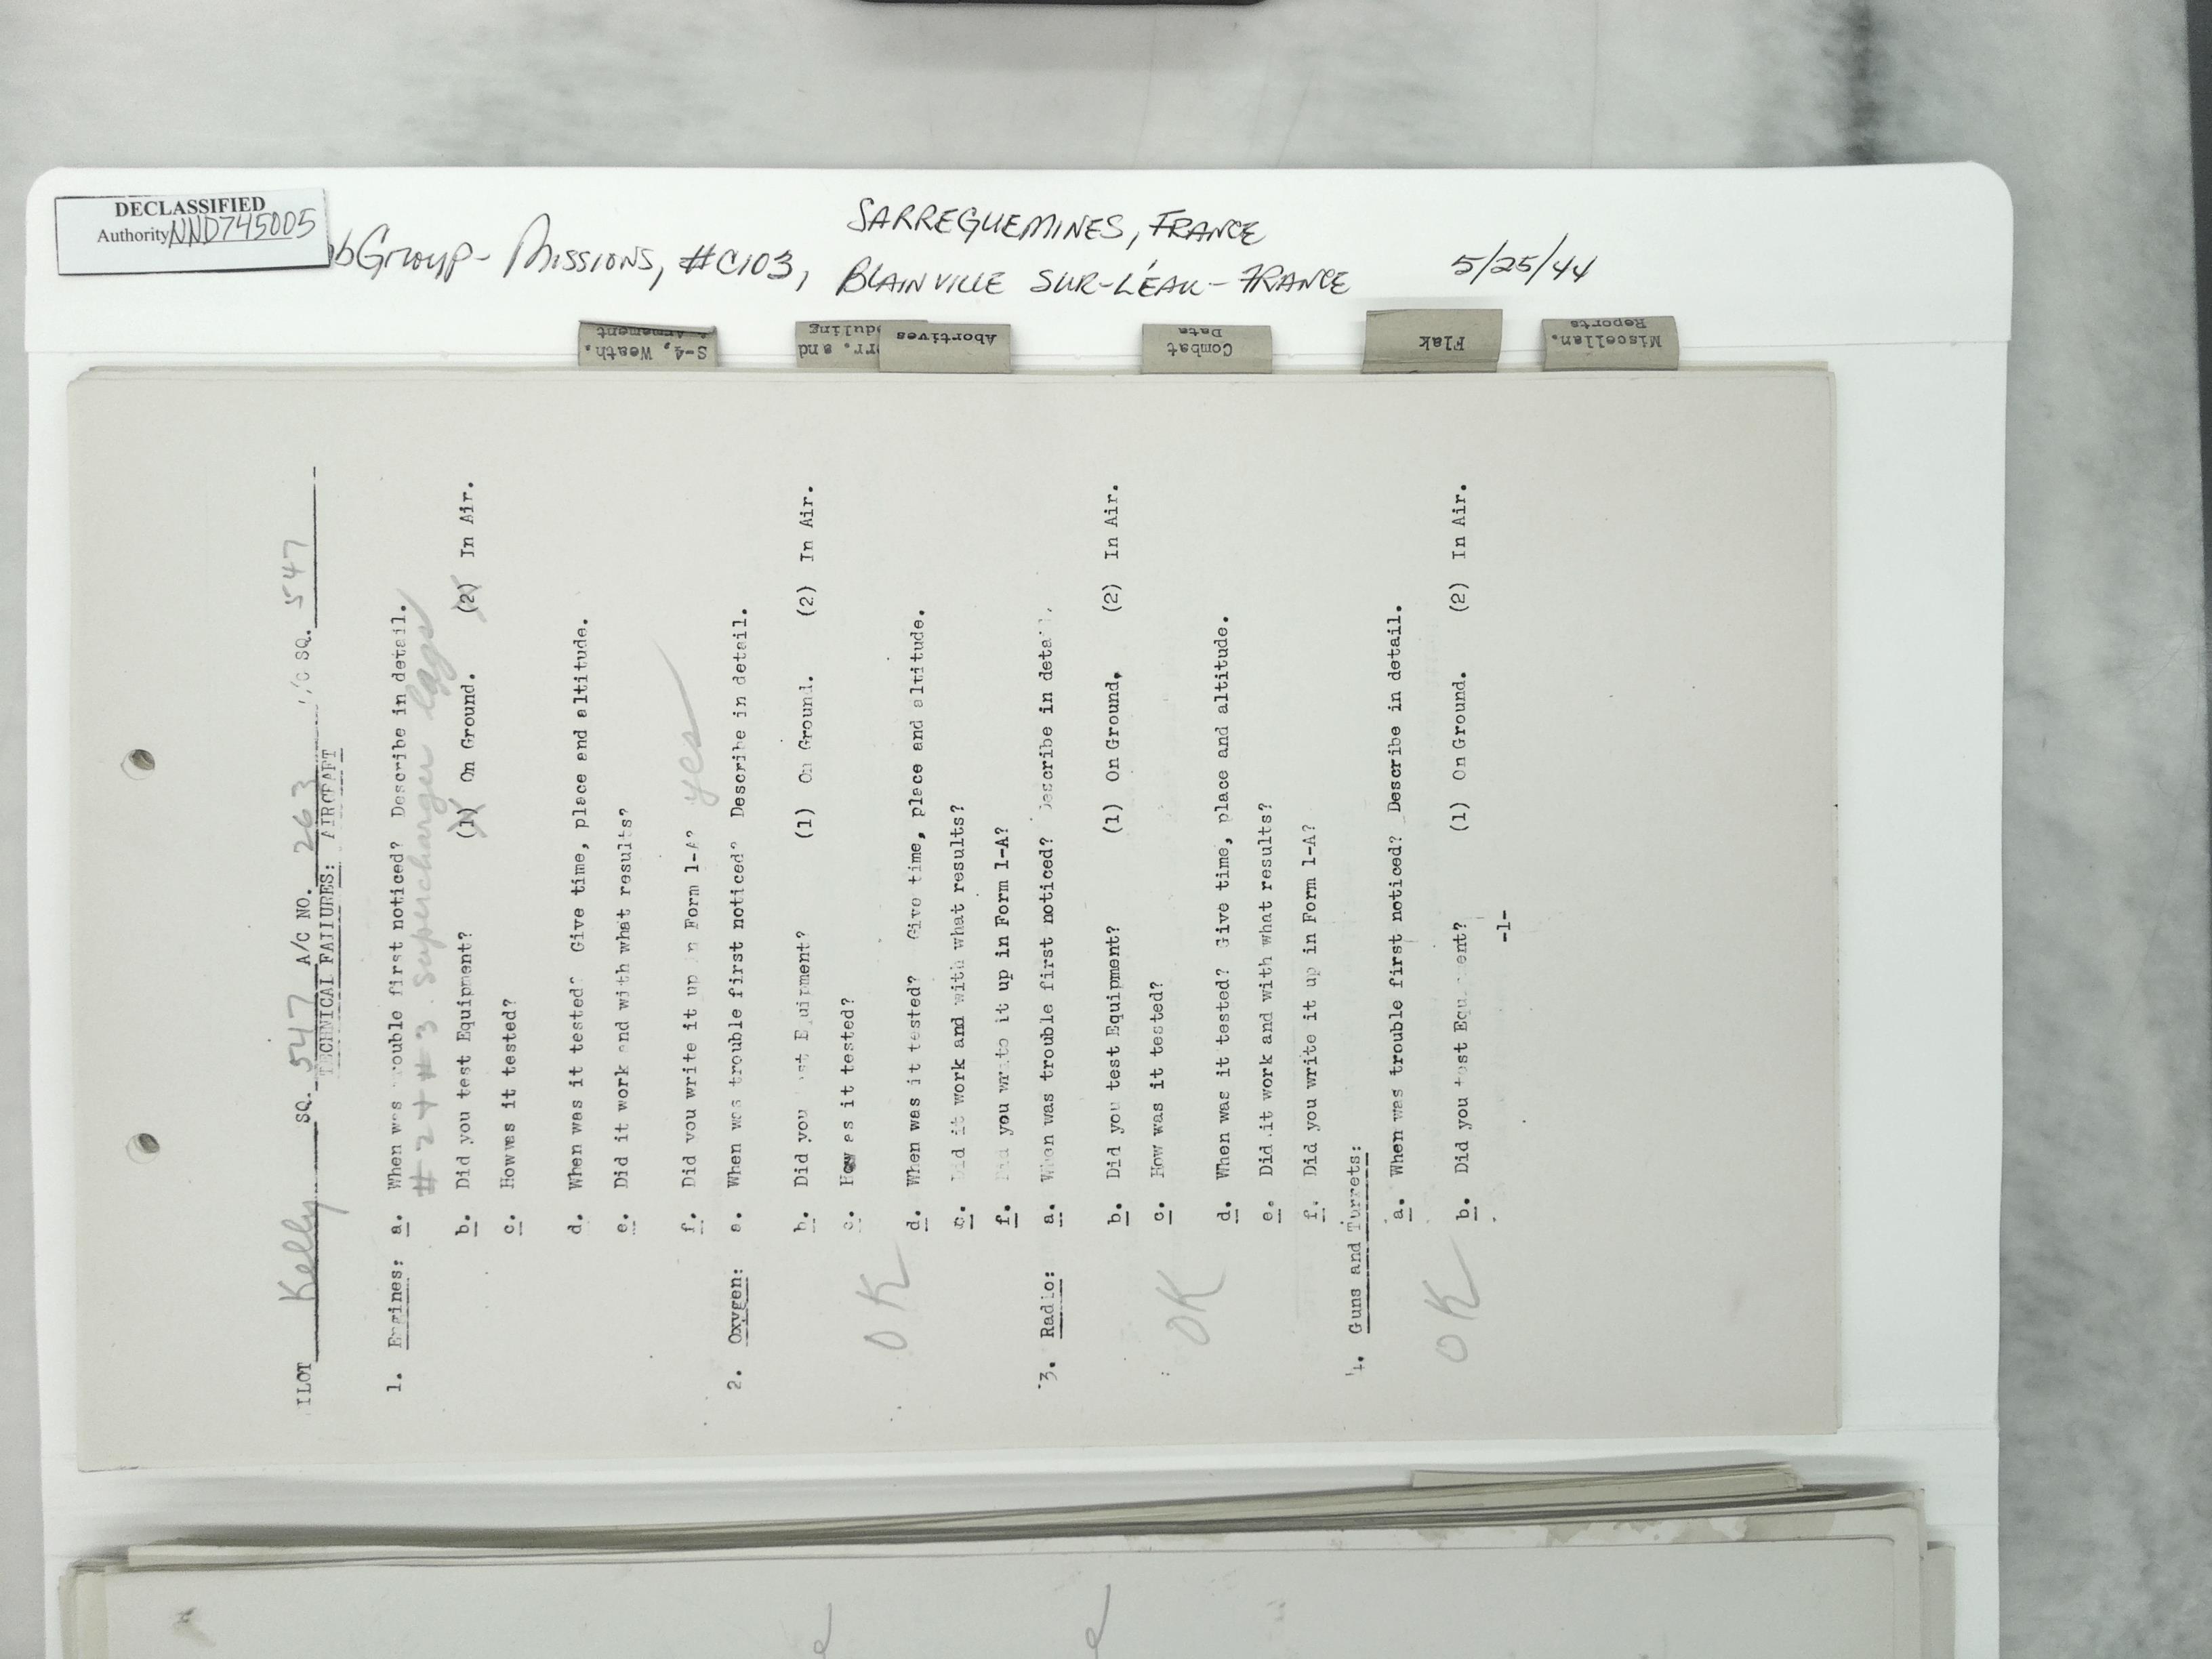 DECLASSIFIED
Authority NND745005
bGroup- Missions, #C103,
SARREGUEMINES, FRANCE
BLAINVILLE SUR-L'EAU-FRANCE
5/25/44
S-4, Weath.
& Armement
rr. and
duling
Abortives
Combat
Data
Flak
Miscellan.
Reports
ILOT Kelly SQ. 547 A/C NO. 263 /C SQ. 547
TECHNICAL FAILURES: AIRCRAFT
1. Engines: a. When was rouble first noticed? Describe in detail.
#2 + #3 supercharger lags
b. Did you test Equipment? (1) On Ground. (2) In Air.
c. How was it tested?
d. When was it tested? Give time, place and altitude.
e. Did it work and with what results?
f. Did you write it up in Form 1-A? yes
2. Oxygen: a. When was trouble first noticed? Describe in detail.
b. Did you est Equipment? (1) On Ground. (2) In Air.
c. How as it tested?
OK
d. When was it tested? Give time, place and altitude.
e. Did it work and with what results?
f. Did you write it up in Form 1-A?
3. Radio: a. When was trouble first noticed? Describe in detail.
b. Did you test Equipment? (1) On Ground. (2) In Air.
c. How was it tested?
OK
d. When was it tested? Give time, place and altitude.
e. Did it work and with what results?
f. Did you write it up in Form 1-A?
4. Guns and Turrets:
a. When was trouble first noticed? Describe in detail.
OK
b. Did you test Equipment? (1) On Ground. (2) In Air.
-1-